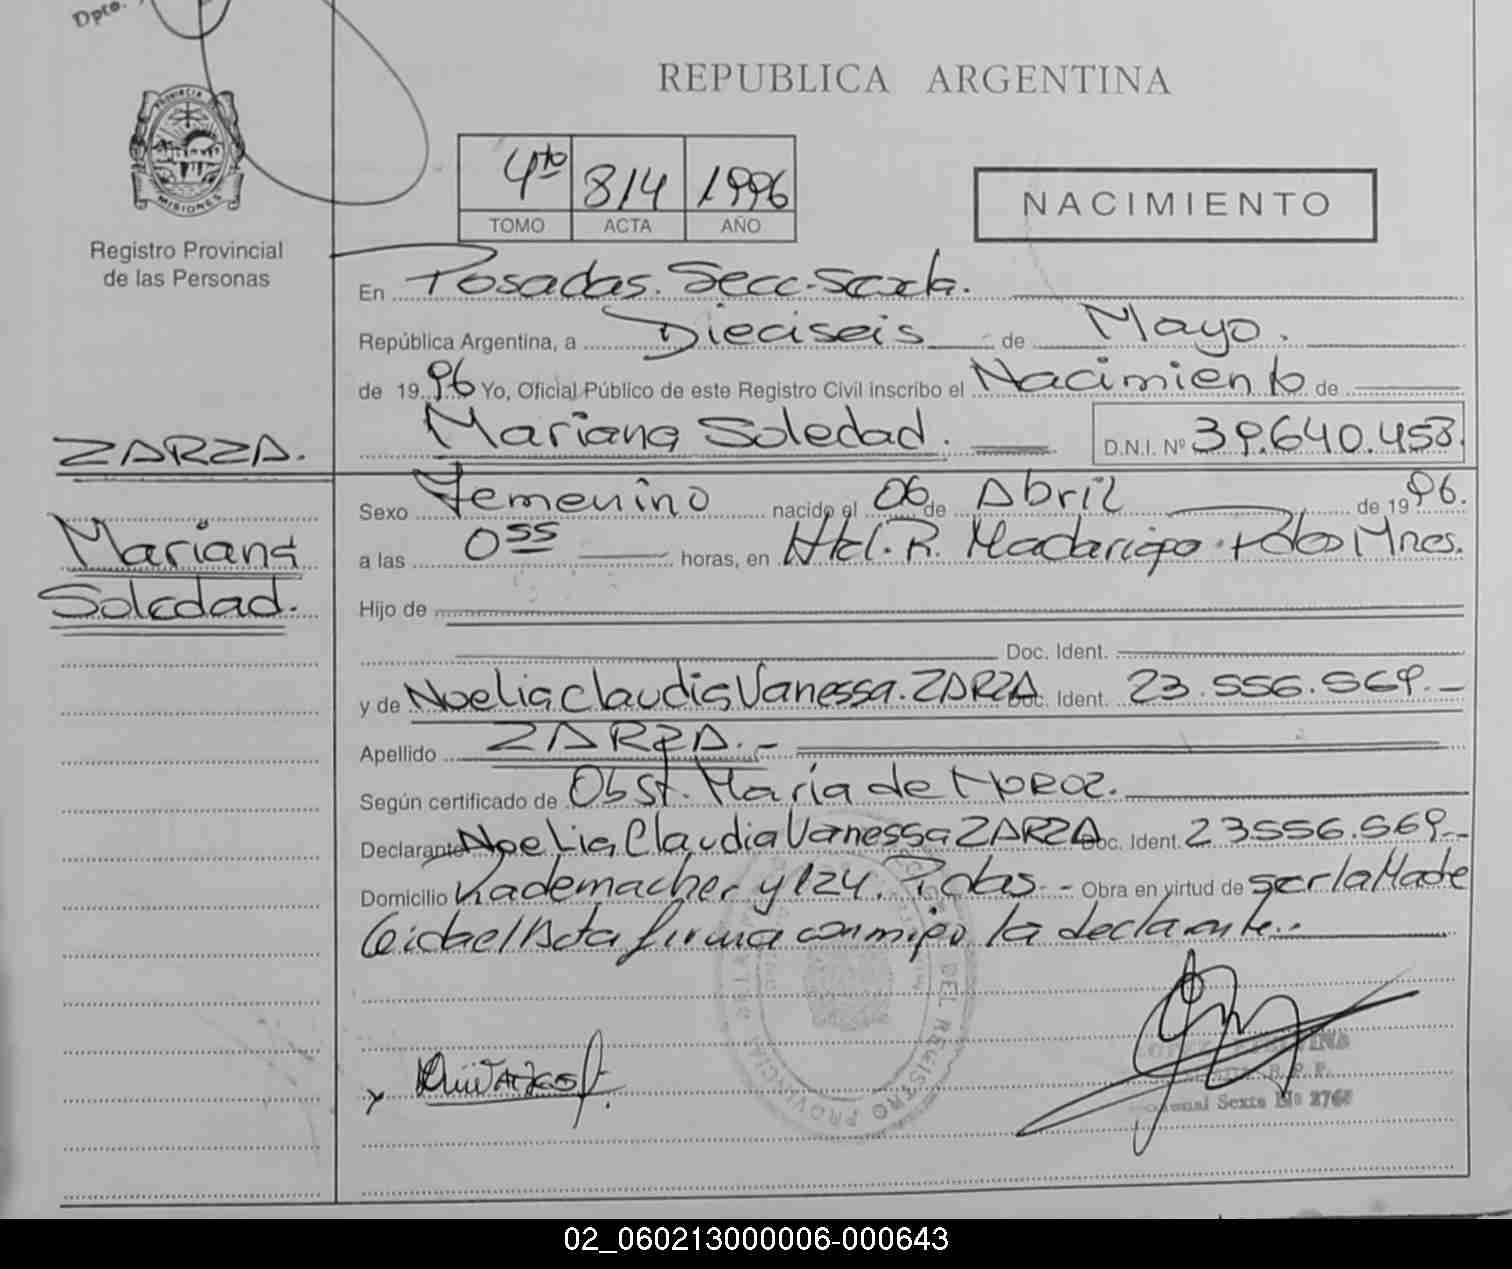 Dpto.
REPUBLICA ARGENTINA
PROVINCIA DE
MISIONES
4to 814 1996
TOMO ACTA AÑO
NACIMIENTO
Registro Provincial
de las Personas
En Posadas. Secc. Sexta.
República Argentina, a Dieciseis de Mayo.
de 1996 Yo, Oficial Público de este Registro Civil inscribo el Nacimiento de
Mariana Soledad. D.N.I. Nº 39.640.453.
ZARZA.
Mariana
Soledad.
Sexo Femenino nacido el 06 de Abril de 1996.
a las 0 55 horas, en Htal. R. Madariaga. Pdas Mnes.
Hijo de
Doc. Ident.
y de Noelia Claudia Vanessa. ZARZA Doc. Ident. 23.556.569.-
Apellido ZARZA.-
Según certificado de Obst. María de
Declarante Noelia Claudia Vanessa ZARZA Doc. Ident. 23556.569.-
Domicilio Rademacher y 124. Pdas.- Obra en virtud de ser la Madre
Leida el Acta firma conmigo la declarante..
DEL REGISTRO PROVINCIAL
Sexta Nº 2768
02_060213000006-000643